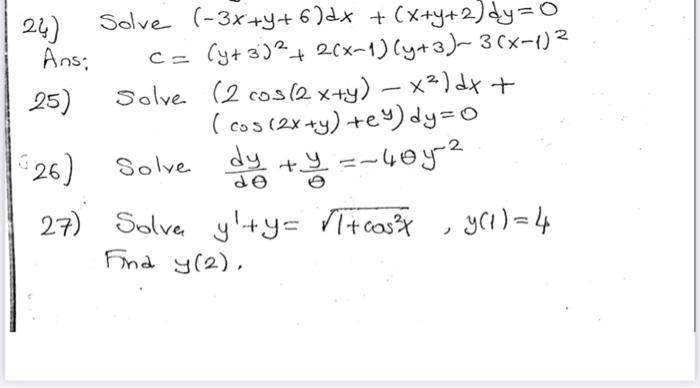 24) Solve (-3x+y+6)dx + (x+y+2)dy=0
Ans: c = (y+3)²+ 2(x-1)(y+3)- 3(x-1)²
25) Solve (2 cos(2x+y) - x²)dx +
(cos(2x+y)+e^y)dy=0
26) Solve dy/dθ + y/θ = -4θy^-2
27) Solve y'+y= √1+cos²x , y(1)=4
Find y(2).